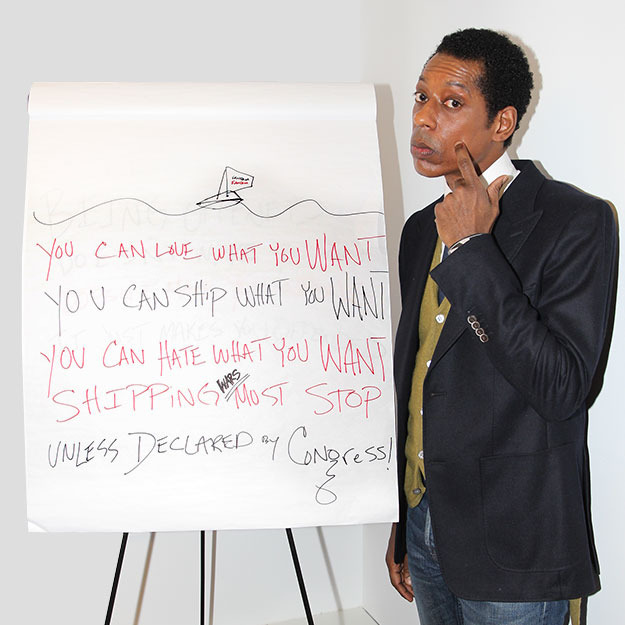 YOU CAN LOVE WHAT YOU WANT
YOU CAN SHIP WHAT YOU WANT
YOU CAN HATE WHAT YOU WANT
SHIPPING WARS MUST STOP
UNLESS DECLARED BY CONGRESS!